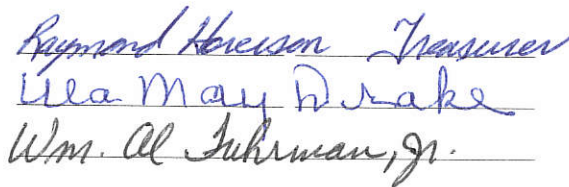 Raymond Horerson Treasurer
Ula May Drake
Wm. Al Fuhrman, Jr.